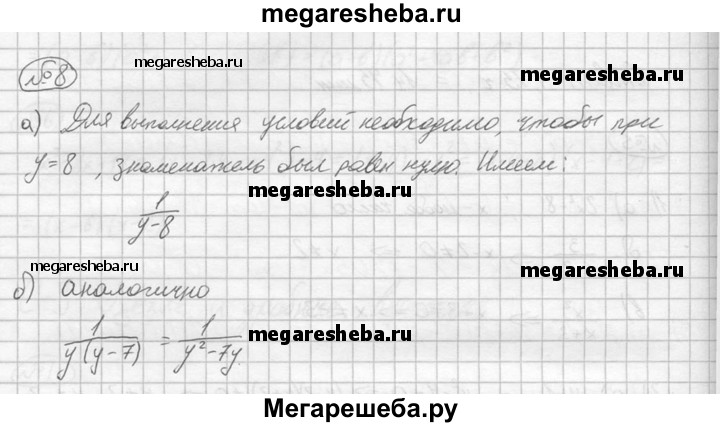 megaresheba.ru
№8
megaresheba.ru
megaresheba.ru
а) Для выполнения условий необходимо, чтобы при
y=8, знаменатель был равен нулю. Имеем:
megaresheba.ru
1/(y-8)
megaresheba.ru
megaresheba.ru
б) аналогично
1/(y(y-7)) = 1/(y²-7y)
megaresheba.ru
megaresheba.ru
Мегарешеба.ру